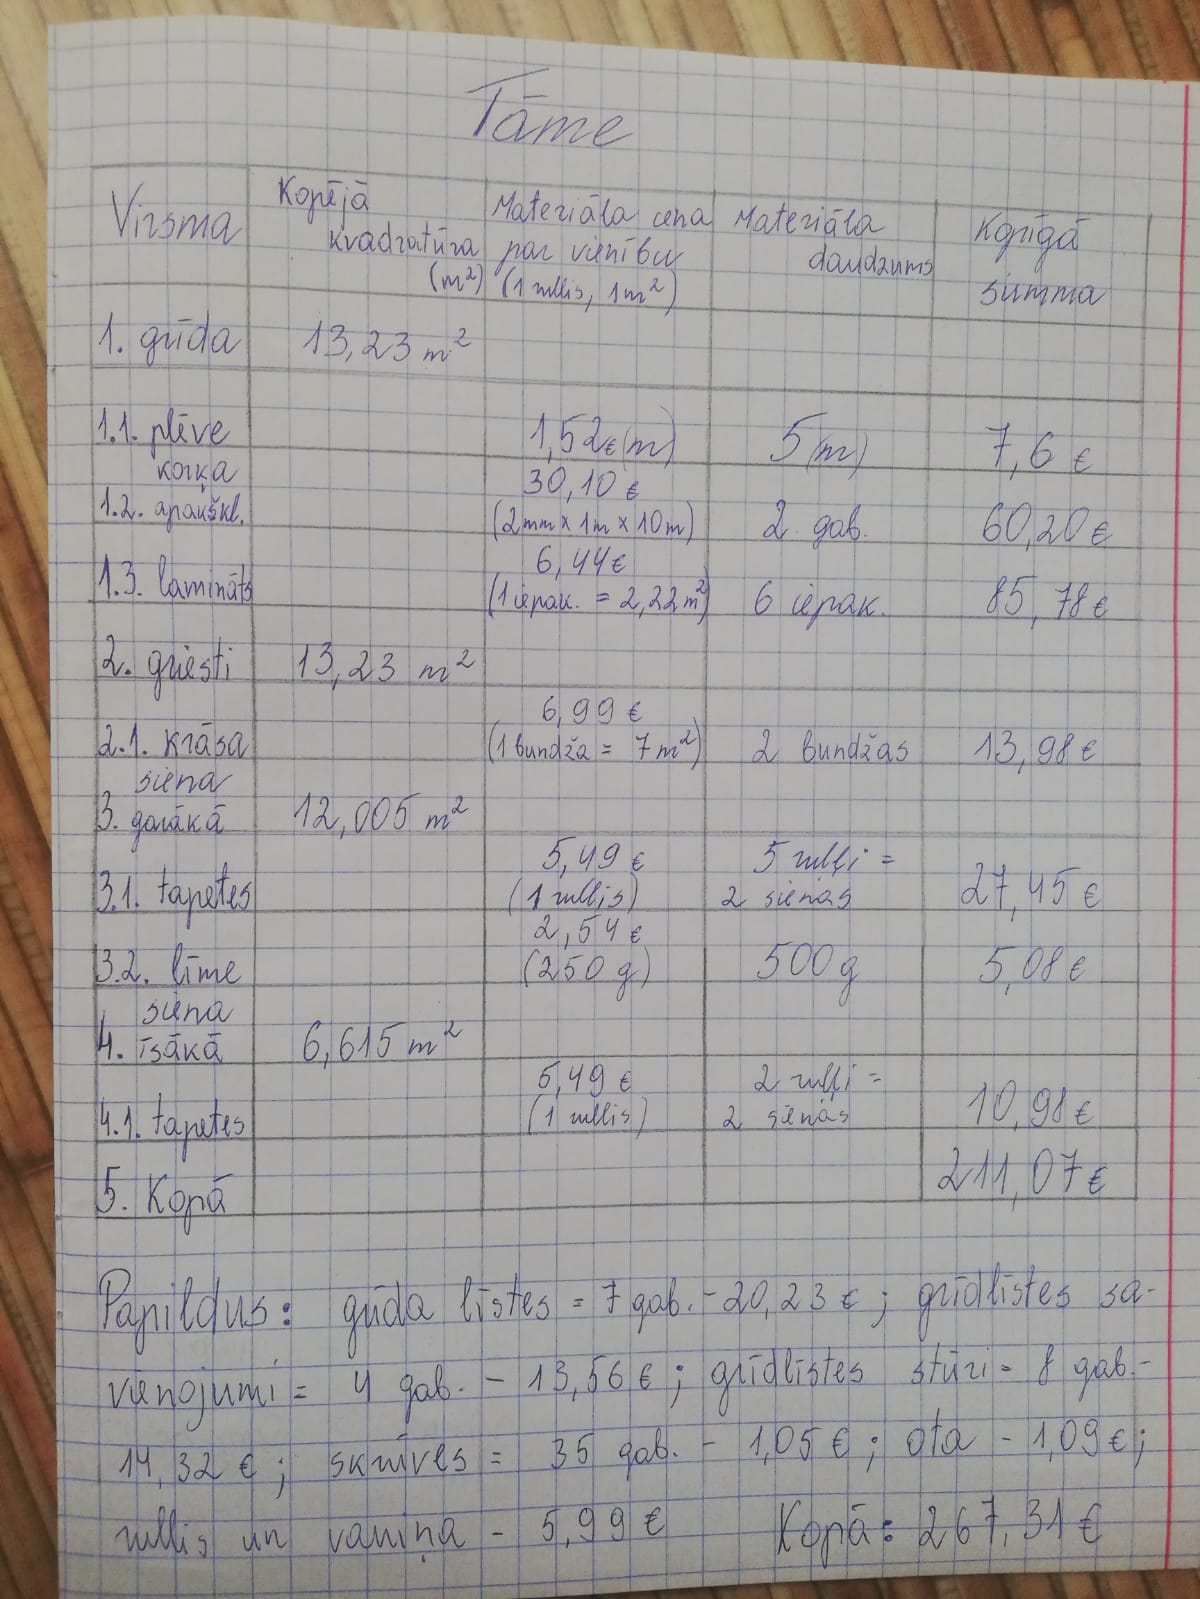 Tāme
Virsma | Kopējā kvadratūra (m²) | Materiāla cena par vienību (1 rullis, 1m²) | Materiāla daudzums | Kopīgā summa
1. grīda | 13,23 m²
1.1. plēve | 1,52€(m) | 5(m) | 7,6 €
1.2. korķa apakškl. | 30,10 € (2mm x 1m x 10m) | 2 gab. | 60,20 €
1.3. lamināts | 6,44€ (1 iepak. = 2,22m²) | 6 iepak. | 85,78€
2. griesti | 13,23 m²
2.1. krāsa | 6,99 € (1 bundža = 7m²) | 2 bundžas | 13,98€
3. siena garākā | 12,005 m²
3.1. tapetes | 5,49 € (1 rullis) | 5 ruļļi = 2 sienas | 27,45€
3.2. līme | 2,54€ (250 g) | 500g | 5,08€
4. siena īsākā | 6,615 m²
4.1. tapetes | 5,49 € (1 rullis) | 2 ruļļi = 2 sienas | 10,98€
5. Kopā | 211,07€
Papildus: grīda līstes = 7 gab. - 20,23 € ; grīdlīstes sa-
vienojumi = 4 gab. - 13,56€ ; grīdlīstes stūri = 8 gab. -
14,32 € ; skrūves = 35 gab. - 1,05€ ; ota - 1,09€ ;
rullis un vanniņa - 5,99€ Kopā: 267,31€